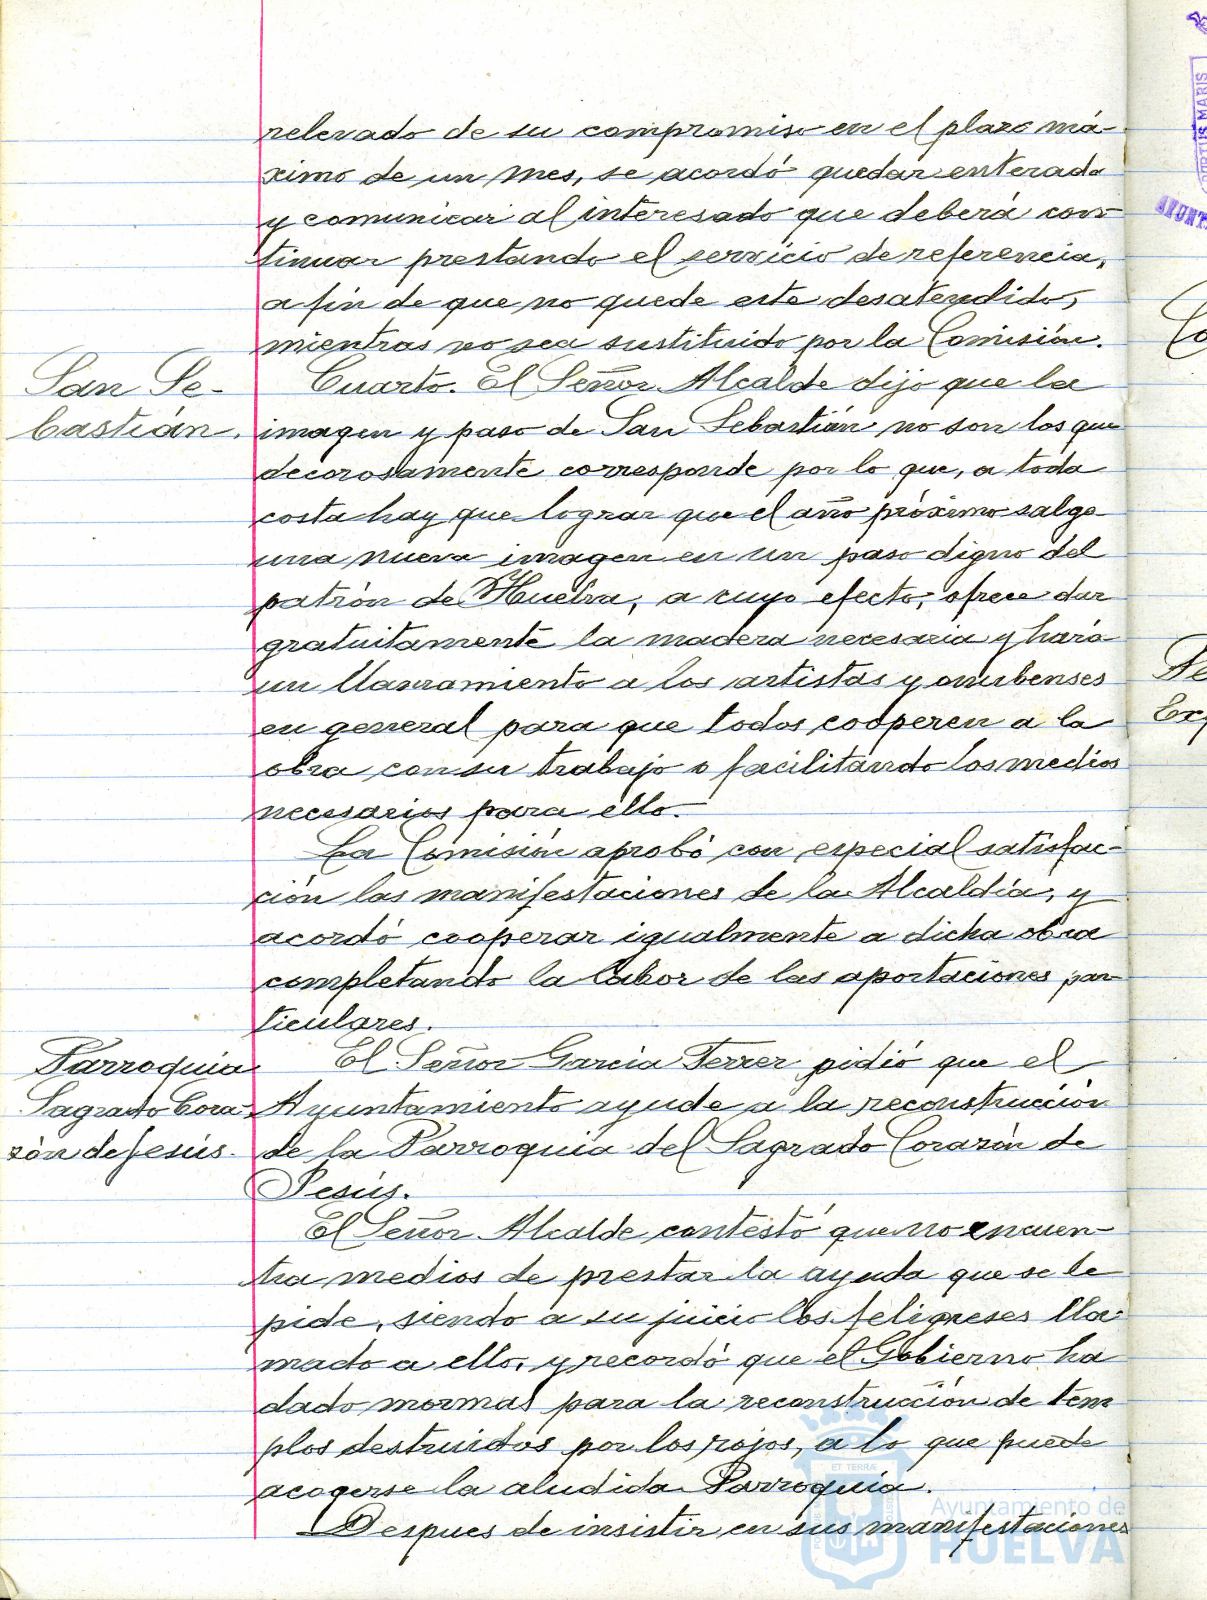 relevado de su compromiso en el plazo má-
ximo de un mes, se acordó quedar enterada
y comunicar al interesado que deberá con-
tinuar prestando el servicio de referencia,
a fin de que no quede este desatendido,
mientras no sea sustituido por la Comisión.
San Se-
bastián.
Cuarto. El Señor Alcalde dijo que la
imagen y paso de San Sebastián no son los que
decorosamente corresponde por lo que, a toda
costa hay que lograr que el año próximo salga
una nueva imagen en un paso digno del
patrón de Huelva, a cuyo efecto, ofrece dar
gratuitamente la madera necesaria y hará
un llamamiento a los artistas y onubenses
en general para que todos cooperen a la
obra con su trabajo o facilitando los medios
necesarios para ello.
La Comisión aprobó con especial satisfac-
ción las manifestaciones de la Alcaldía, y
acordó cooperar igualmente a dicha obra
completando la labor de las aportaciones par
ticulares.
Parroquia
Sagrado Cora
zón de Jesús.
El Señor García Ferrer pidió que el
Ayuntamiento ayude a la reconstrucción
de la Parroquia del Sagrado Corazón de
Jesús.
El Señor Alcalde contestó que no encuen-
tra medios de prestar la ayuda que se le
pide, siendo a su juicio los feligreses lla-
mado a ello, y recordó que el Gobierno ha
dado normas para la reconstrucción de tem
plos destruidos por los rojos, a lo que puede
acogerse la aludida Parroquia.
Despues de insistir en sus manifestaciones
Ayuntamiento de
HUELVA